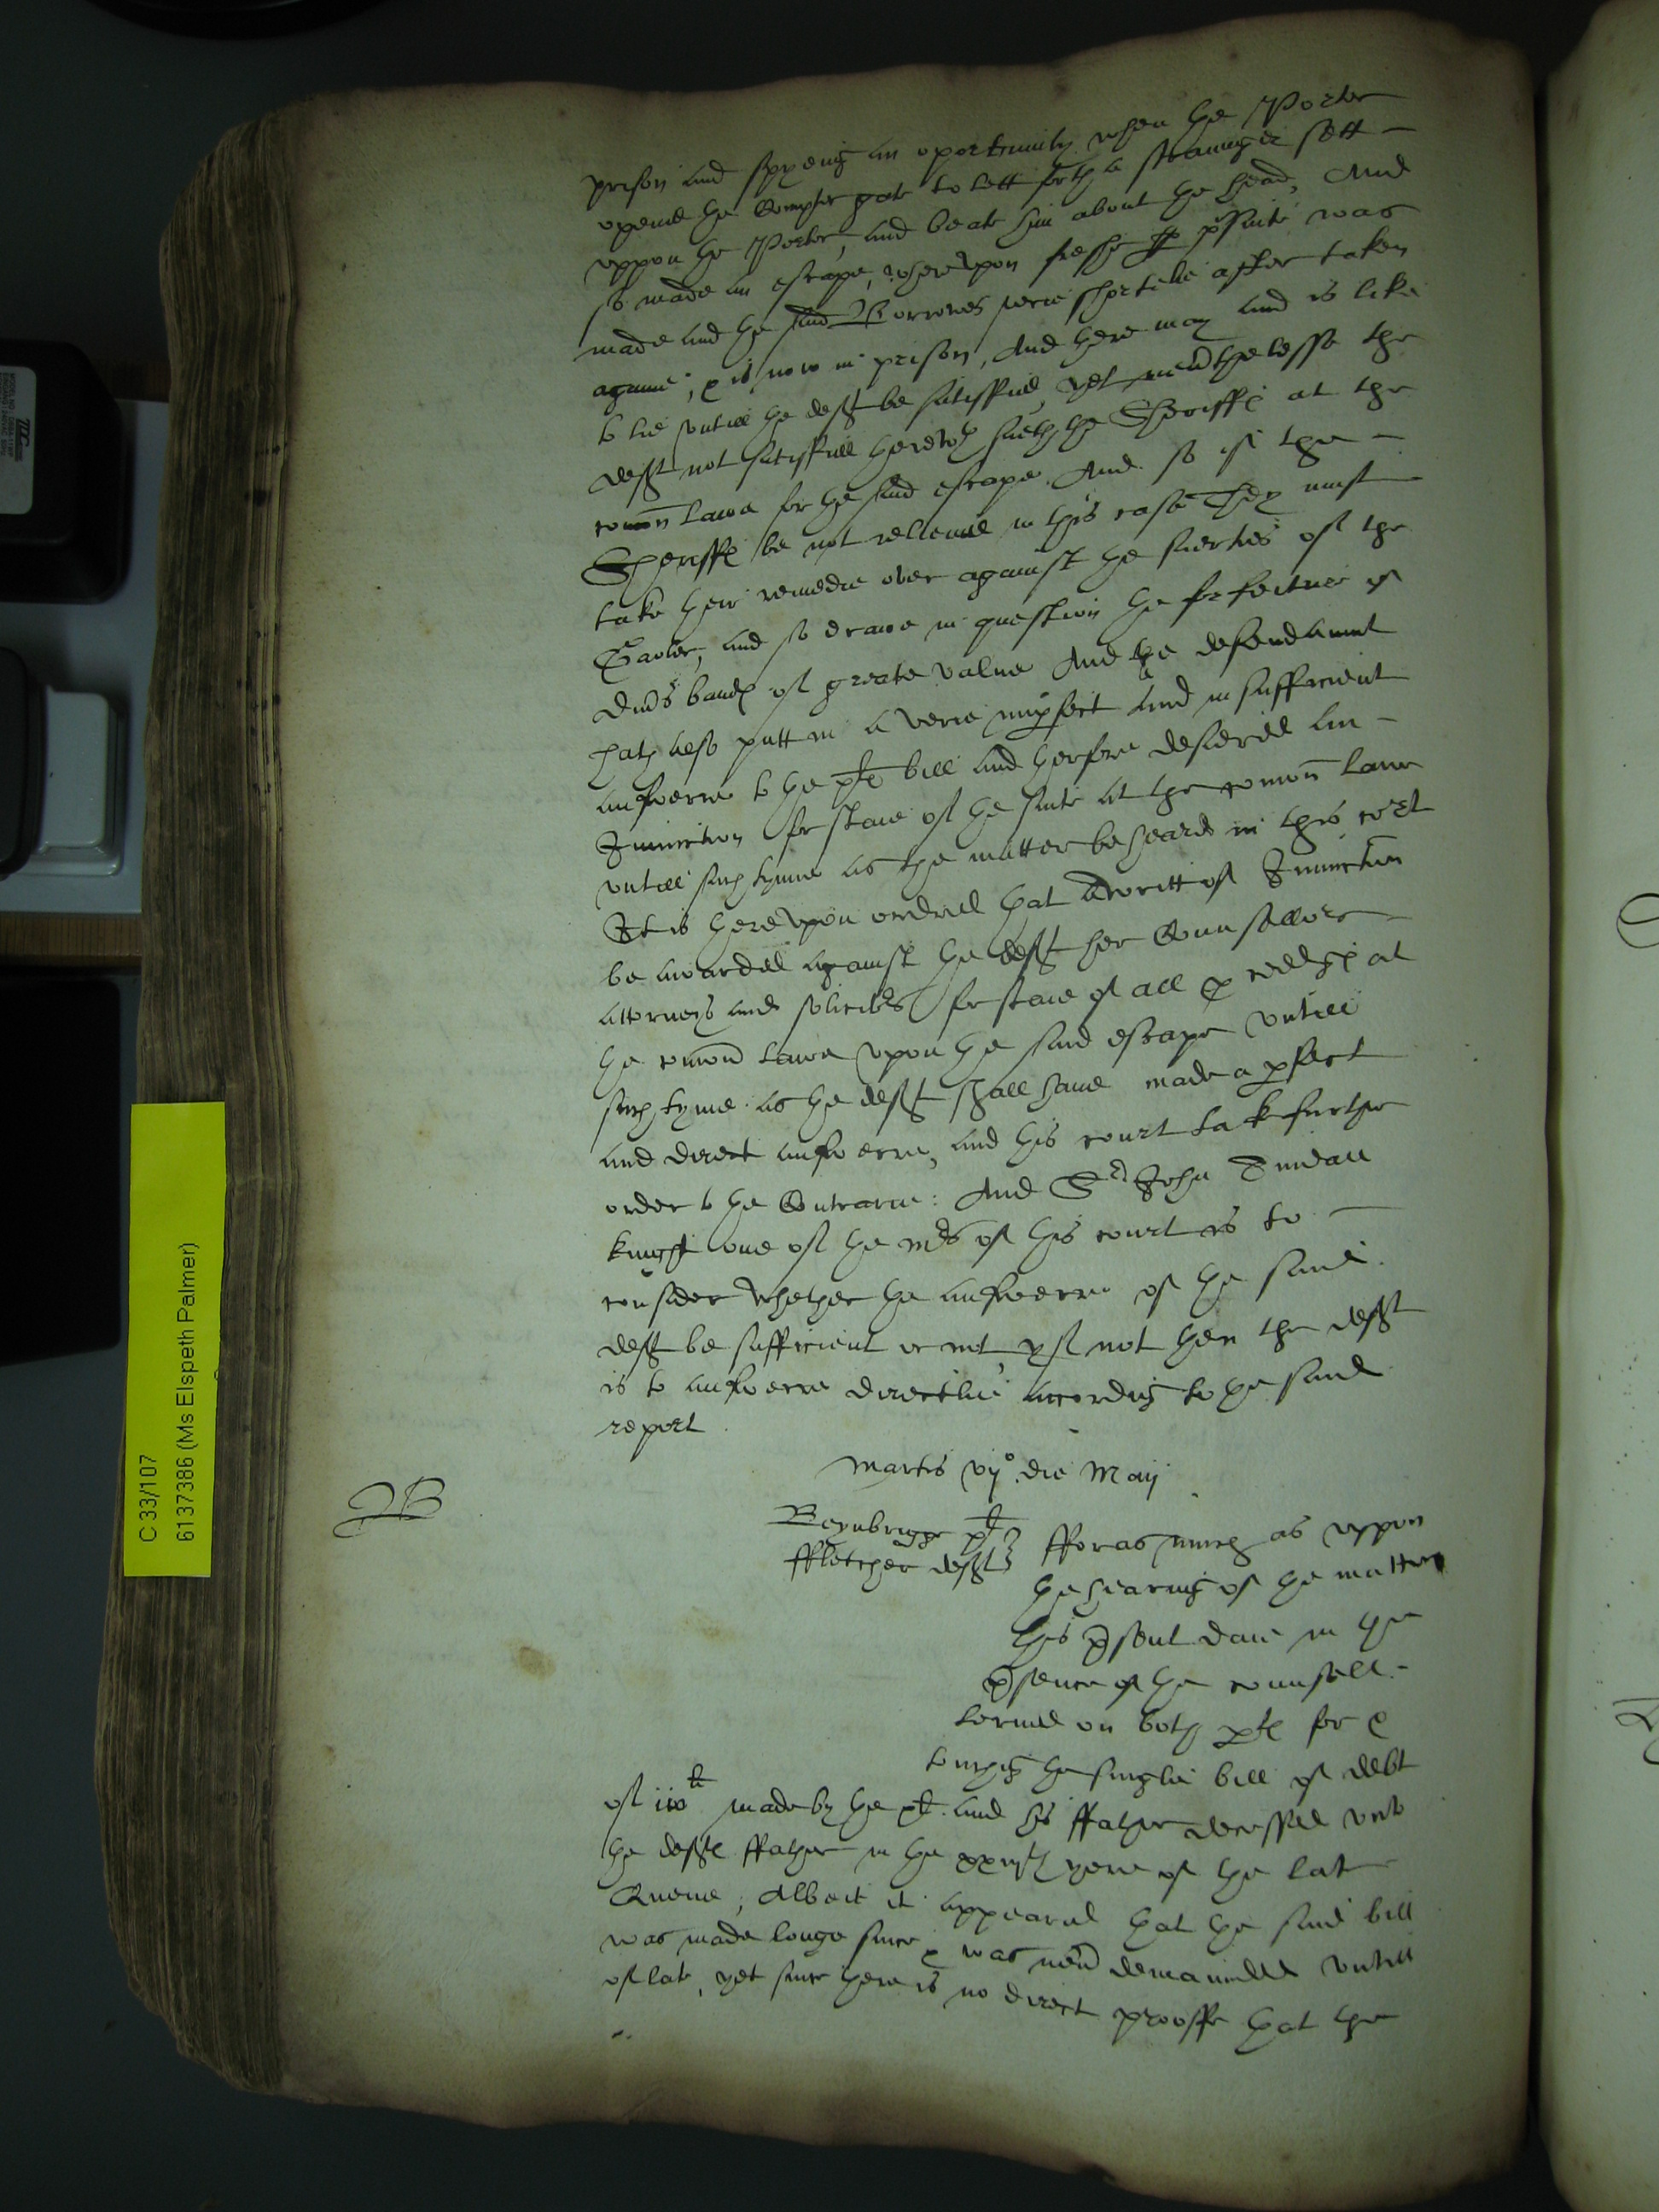 prison and spyeing an oportunity when the Porter
opened the Compter gate to lett forth a straunger sett
vppon the Porter, and beate him about the head, And
so made an escape, wherevpon freshe psuite was
made and the said Borrowes were shortelie after taken
againe, & is now in prison, And there may and is like
to lie vntill the deft be satisfied, yet neuthelesse the
deft not satisfied therewth sueth the Sheriffe at the
comon lawe for the said escape. And so if the
Sheriffe be not relieued in this case They must
take their remedie over against the suerties of the
Gaoler, and so drawe in question the forfeiture of
diu's bande of greate value And the defendaunt
hath also putt in a verie impfect and insufficient
answere to the plte bill and therfore desiered an
Iniunction for staie of the suite at the comon lawe
vntill such tyme as the matter be heard in this cort
It is therevpon ordred that a writt of Iniunction
be awarded against the deft her Counsellors
attorneys and solicitors for staie of all pceedings at
the comon lawe vpon the said escape vntill
such tyme as the deft shall haue made a pfect
and direct answere, and this court take further
order to the Contrarie: And Sr John Tindall
knight one of the mrs of this court is to
consider whether the answere of the said
deft be sufficient or not, yf not then the deft
is to answere directlie according to the said
report
Martis vijo die Maij
JB
Beynbrigge plt
ffletcher deft
fforasmuch as vppon
the hearing of the matter
this psent daie in the
psence of the counsell
learned on both pte for &
touching the single bill of debt
of made by the plt and his ffather deceassed vnto
the defte ffather in the yere of the late
Queene, Albeit it appeared that the said bill
was made longe since & was neu demaunded vntill
of late, yet since there is no direct prooffe that the
C 33/107
6137386 (Ms Elspeth Palmer)